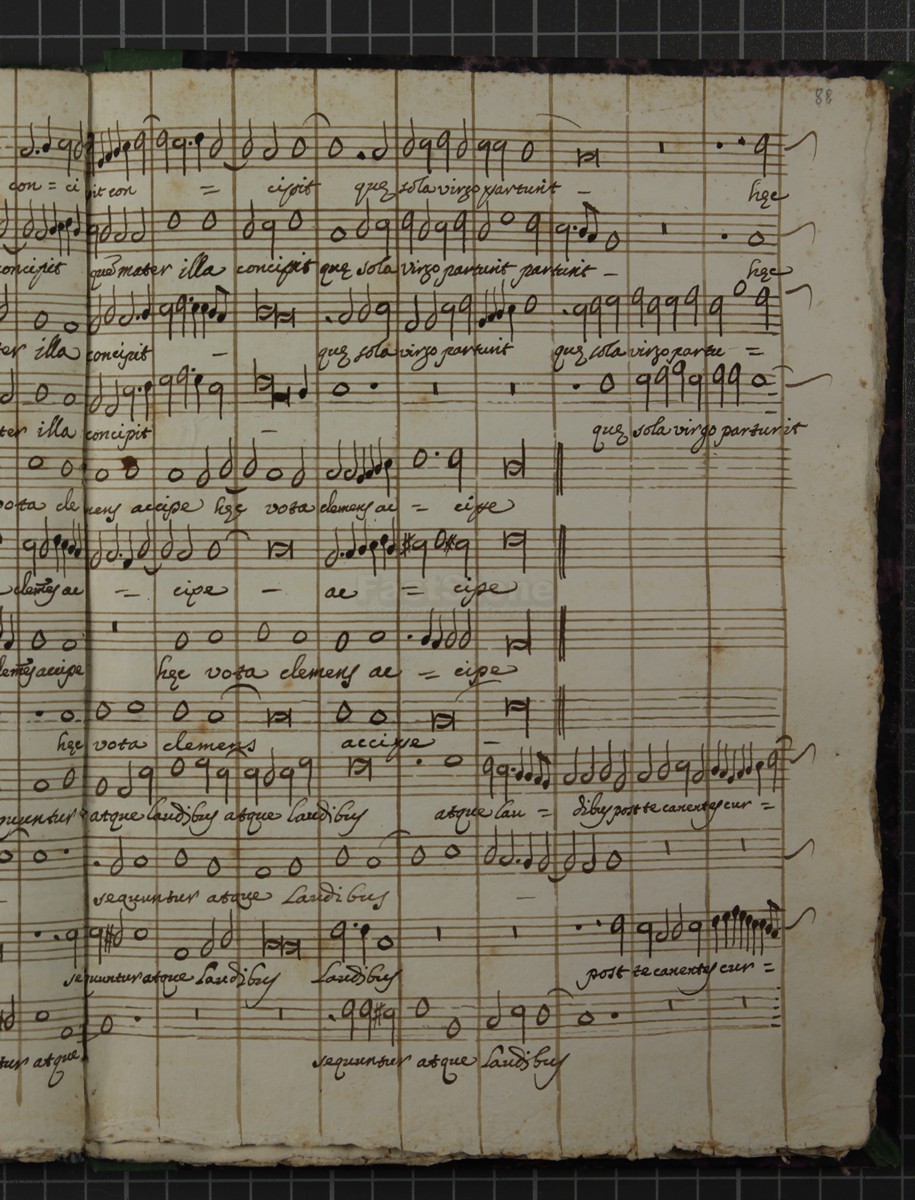 88
con = ci pit con = cipit quę sola virgo parturit – hęc
concipit quē mater illa concipit quę sola virgo parturit parturit – hęc
ter illa concipit – quę sola virgo parturit quę sola virgo partu =
ter illa concipit – quę sola virgo parturit
vota cle mens accipe hęc vota clemens ac = cipe
clemēs ac = cipe – ac = cipe
clemēs accipe hęc vota clemens ac = cipe
hęc vota clemens accipe –
quuntur atque laudibus atque laudibus atque lau = dibus post te canentes cur =
– sequuntur atque Laudibus –
sequuntur atque Laudibus Laudibus post te canentes cur =
tur atque sequuntur atque Laudibus